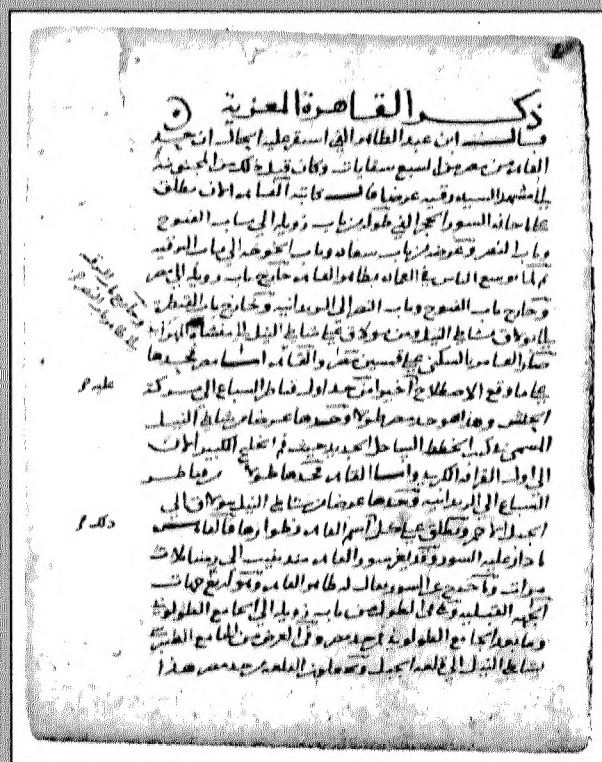 ذكر القاهرة المعزية
قال ابن عبد الظاهر الذي استقر عليه الحال ان حد
القاهرة من مصر من السبع سقايات وكان قبل ذلك من المجنونة
الى مشهد السيده رقيه عرضا قالت القاهره الان تطلق
على ما حازه السور الحجر الذي طوله من باب زويله الى باب الفتوح
وباب النصر وعرضه من باب سعاده وباب الخوخه الى باب البرقيه
ثم لما توسع الناس في العماره بظاهر القاهره خارج باب زويله الى مصر
وخارج باب الفتوح وباب النصر الى الريدانيه وخارج باب القنطره
الى بولاق شاطئ النيل ومن بولاق على شاطئ النيل الى منشاة المهراني
صار العامر بالسكنى على قسمين مصر والقاهره اما مصر فحدها
على ما وقع الاصطلاح اخيرا من حد اول قناطر السباع الى بركة
الحبش وهذا هو حد مصر طولا وحدها عرضا من شاطئ النيل
المسمى بذلك الخطط الساحل الجديد حيث فم الخليج الكبير الان
الى اول القرافه الكبرى واما القاهره فحدها طولا من قناطر
السباع الى الريدانيه وحدها عرضا من شاطئ النيل ببولاق الى
الجبل الاحمر ويطلق على كل اسم القاهره وظواهرها فالقاهره
ما دار عليه السور وقد تغير سور القاهره منذ بنيت الى زمننا ثلاث
مرات وما خرج عن السور يقال له ظاهر القاهره وهو اربع جهات
الجهه القبليه وهي في الطول من باب زويله الى الجامع الطولوني
وما بعد الجامع الطولوني من حد مصر وفي العرض من الجامع الطيبرسي
بشاطئ النيل الى قلعه الجبل القلعه من حد مصر هذا
وخارج باب البرقيه
عليه
ذلك